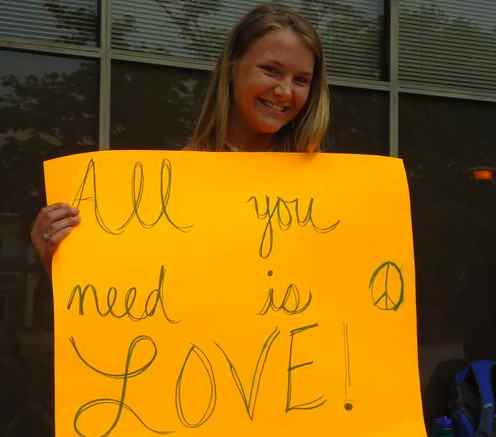 All you
need is
LOVE!